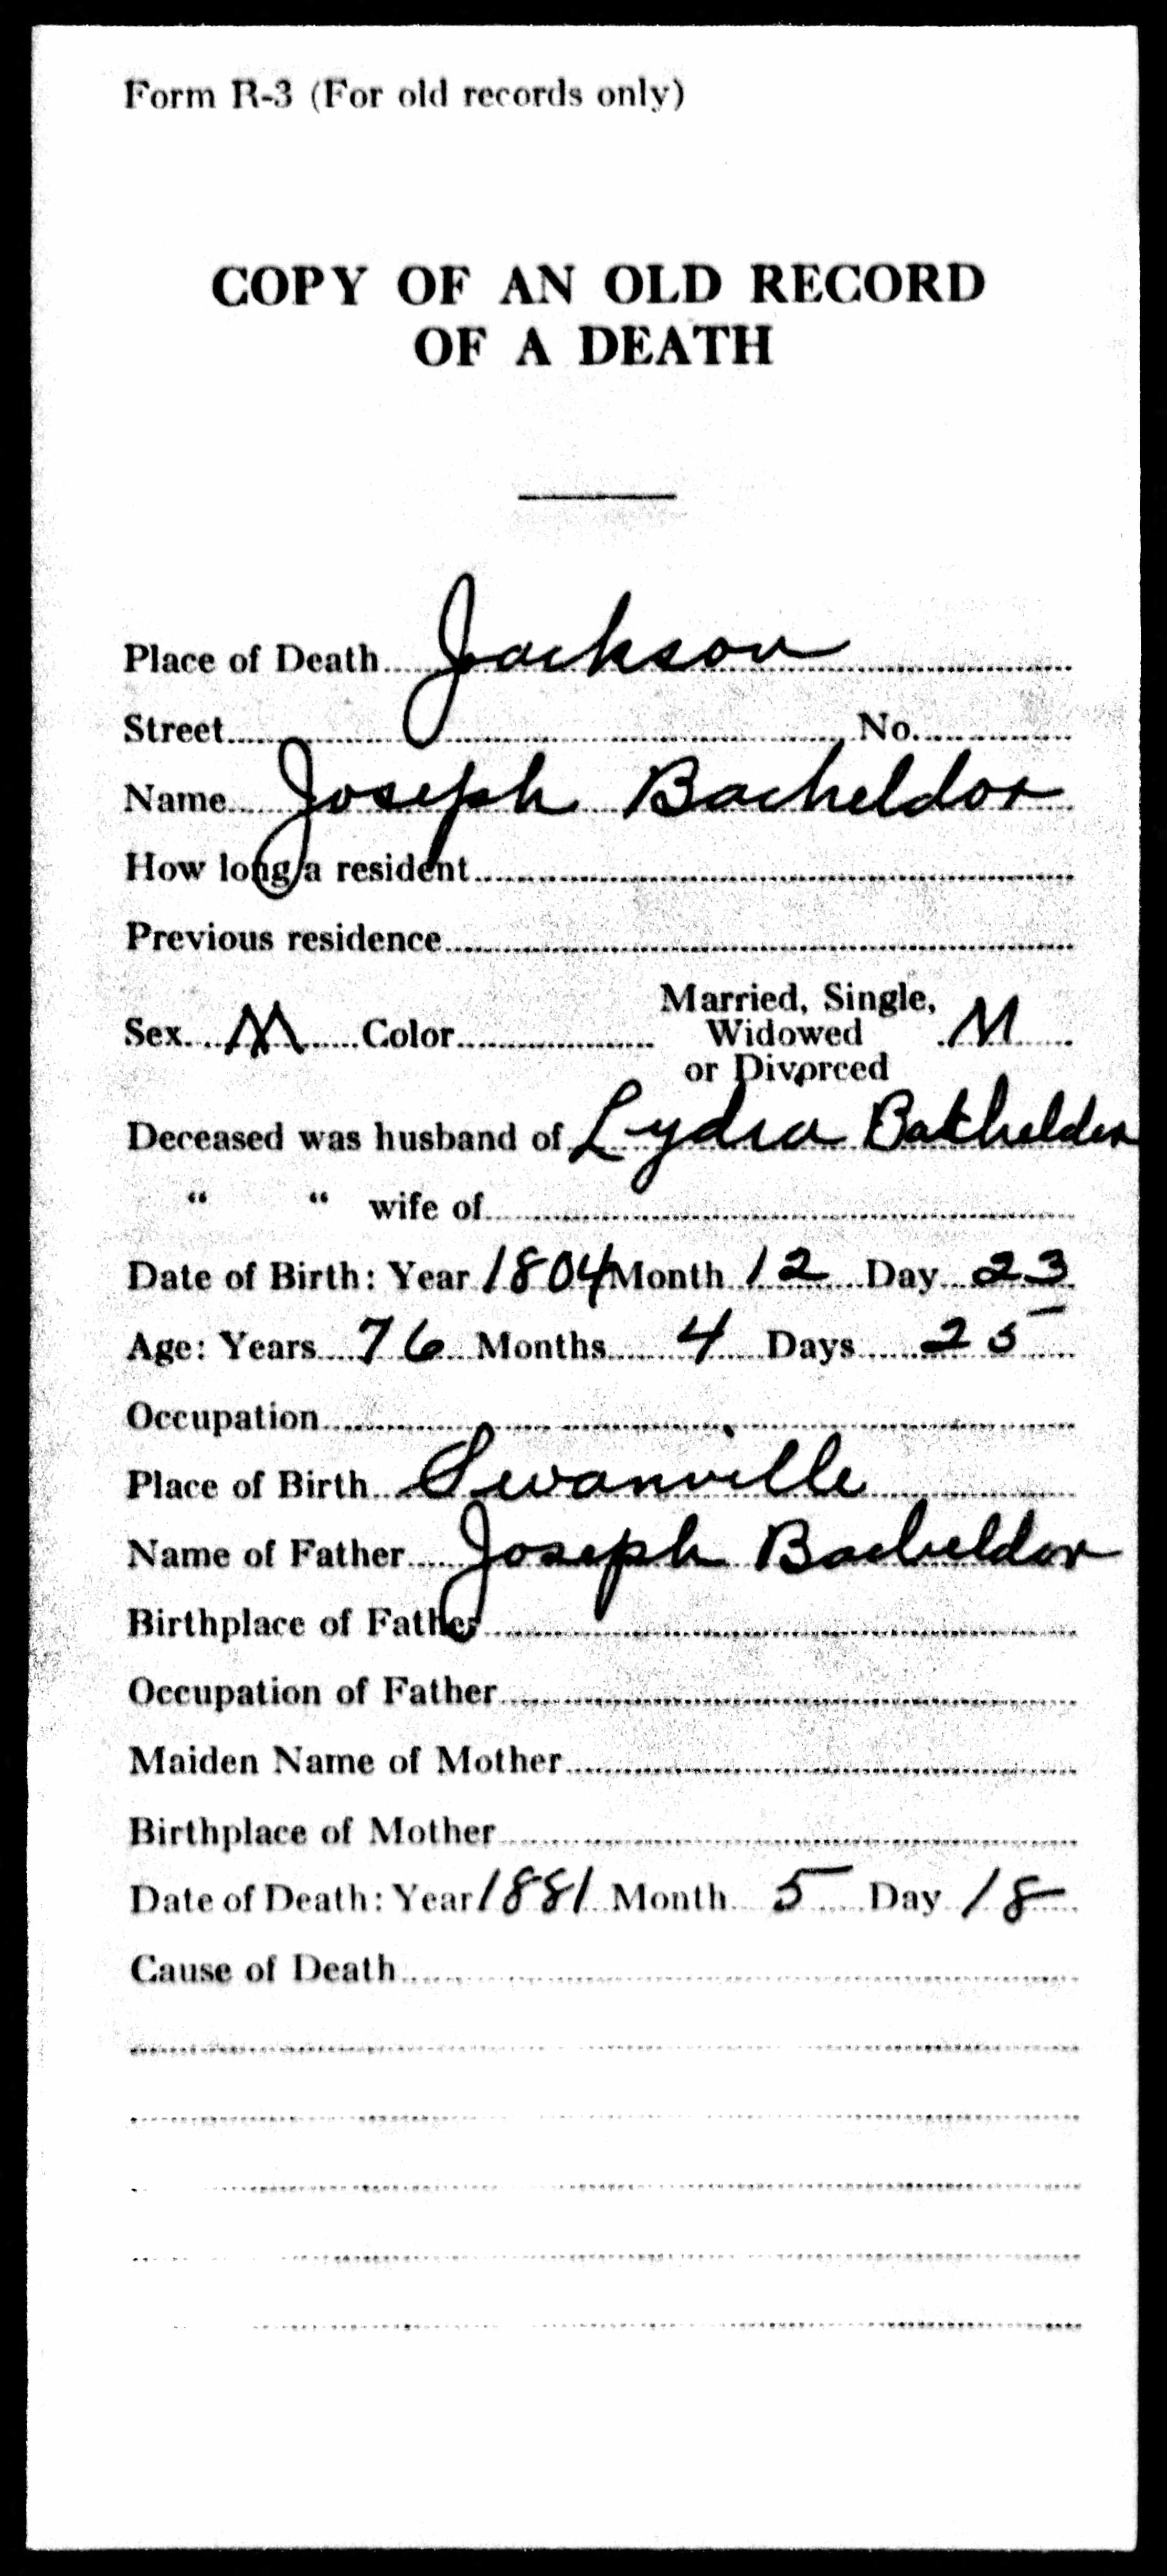 Form R-3 (For old records only)
COPY OF AN OLD RECORD
OF A DEATH
Place of Death Jackson
Street No.
Name Joseph Bacheldor
How long a resident
Previous residence
Sex M Color Married, Single, Widowed or Divorced M
Deceased was husband of Lydia Batchelder
" " wife of
Date of Birth: Year 1804 Month 12 Day 23
Age: Years 76 Months 4 Days 25
Occupation
Place of Birth Swanville
Name of Father Joseph Bacheldor
Birthplace of Father
Occupation of Father
Maiden Name of Mother
Birthplace of Mother
Date of Death: Year 1881 Month 5 Day 18
Cause of Death